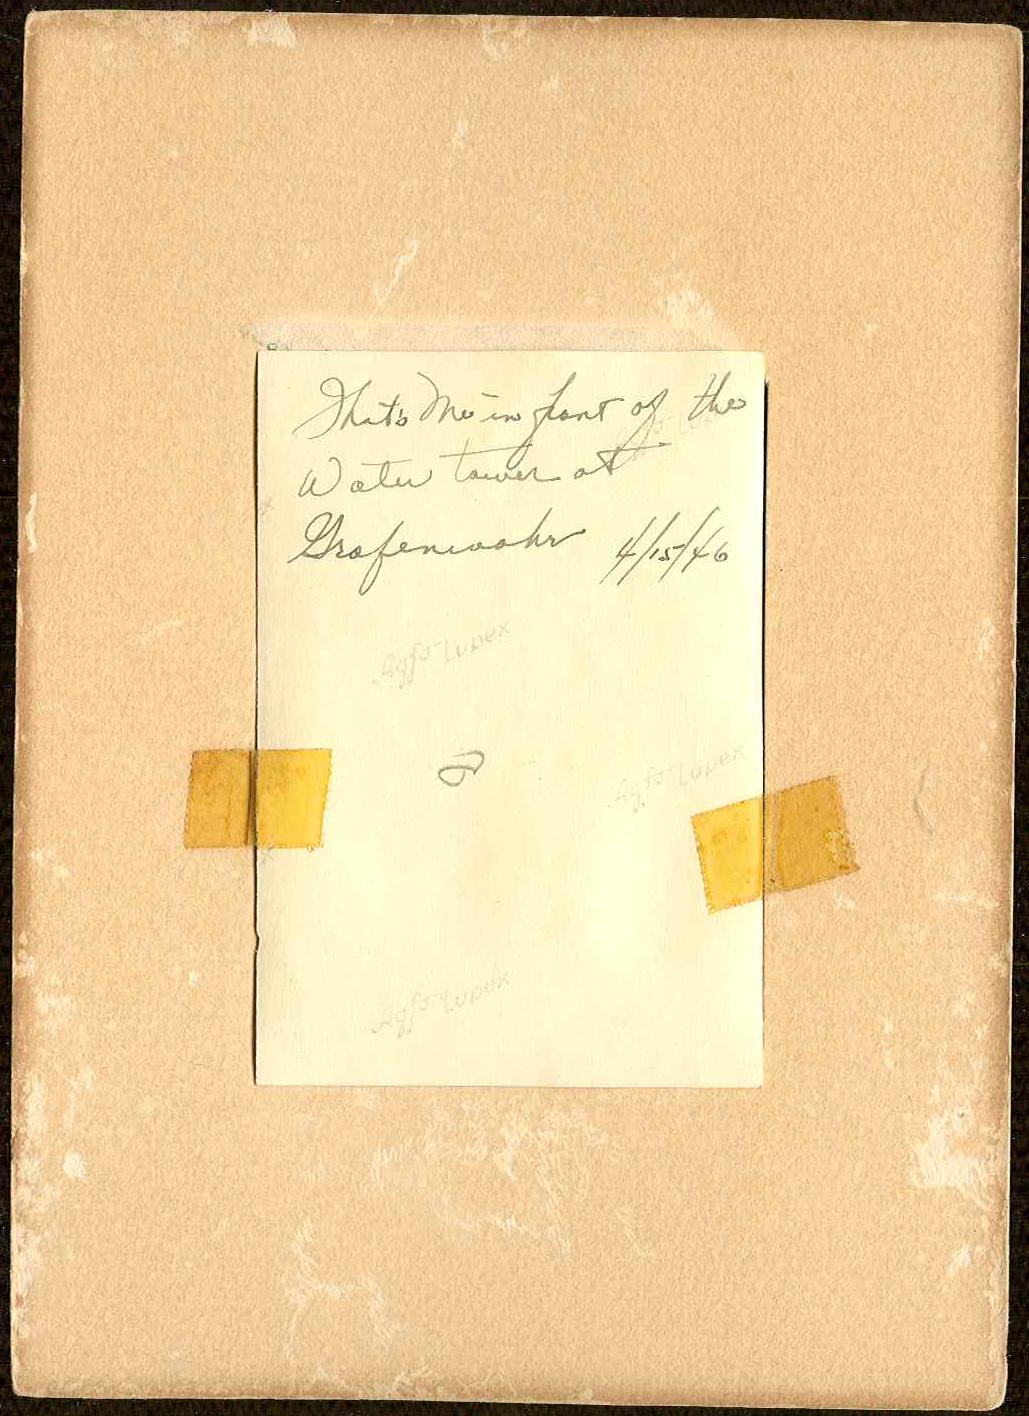 That's Me in front of the
Water tower at
Grafenwohr 4/15/46
Agfa-Lupex
Agfa-Lupex
Agfa-Lupex